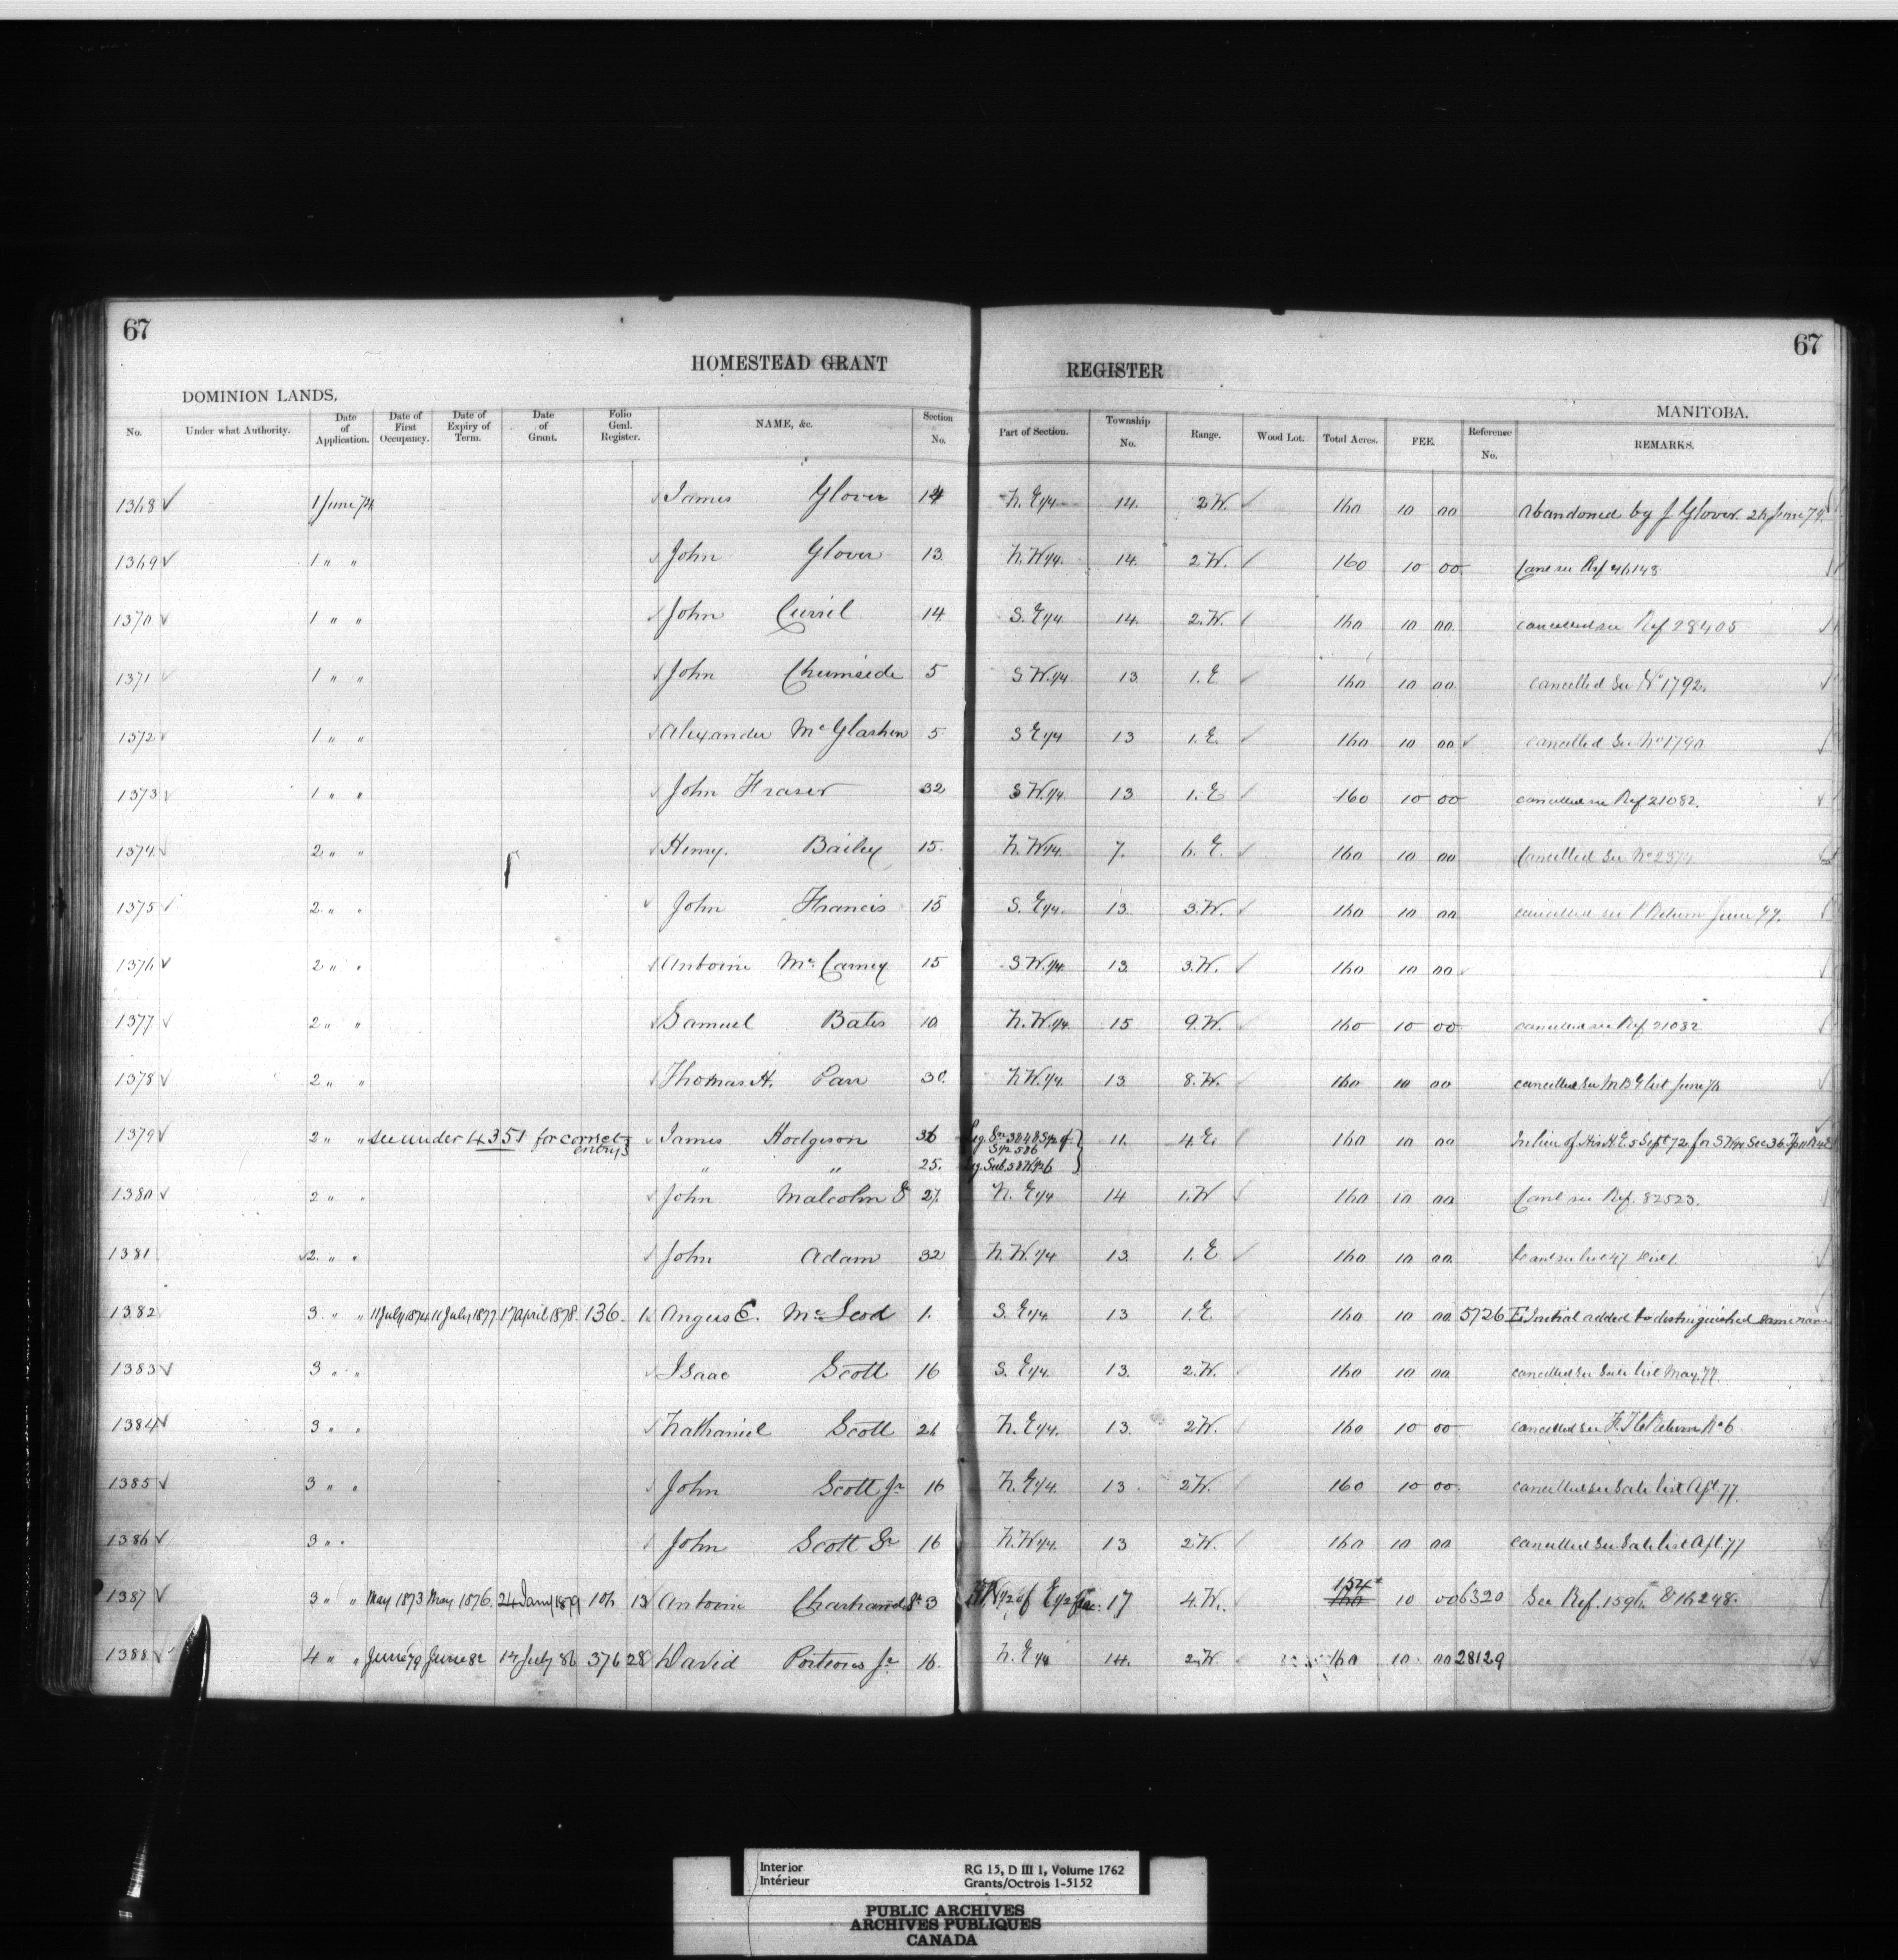 67
67
HOMESTEAD GRANT REGISTER
DOMINION LANDS,
MANITOBA.
No. Under what Authority. Date of Application. Date of First Occupancy. Date of Expiry of Term. Date of Grant. Folio Genl. Register. NAME, &c. Section No. Part of Section. Township No. Range. Wood Lot. Total Acres. FEE. Reference No. REMARKS.
1368 1 June 74 James Glover 14 N. E 1/4 14. 2 W. 160 10 00 Abandoned by J. Glover. 26 June 79.
1369 1 " " John Glover 13 N. W 1/4. 14. 2 W. 160 10 00 Canc see Ref 46143
1370 1 " " John 14. S. E 1/4 14. 2. W. 160 10 00 cancelled see Ref 28405
1371 1 " " John 5 S W. 1/4 13 1. E 160 10 00 cancelled See No 1792.
1372 1 " " Alexander McGlashen 5 S E 1/4 13 1. E. 160 10 00 cancelled See No 1790
1373 1 " " John Fraser 32 S W. 1/4 13 1. E 160 10 00 cancelled see Ref 21082.
1374 2 " " Henry. Bailey 15. N. W 1/4. 7. 6. E. 160 10 00 Cancelled See No 2374
1375 2. " " John Francis 15 S. E 1/4. 13. 3. W. 160 10 00 cancelled see Return June 79.
1376 2 " " Antoine Mc Carney 15 S W. 1/4. 13. 3. W. 160 10 00
1377 2 " " Samuel Bates 10 N. W. 1/4 15 9. W. 160 10 00 cancelled see Ref 21082
1378 2 " " Thomas H. Parr 30. N W. 1/4. 13 8. W. 160 10 00 cancelled See List June
1379 2 " " see under 4351 for correct entry James Hodgson 36 11. 4 E. 160 10 00 In lieu of His H. E 5 Sept 72. for S W 1/4 Sec 36. Tp 11 R 4 E
" " 25.
1380 2 " " John Malcolm Sr 27. N. E 1/4 14 1. W 160 10 00 Canc see Ref. 82523.
1381 2. " " John Adam 32 N. W. 1/4 13. 1. E 160 10 00
1382 3. " " 11 July 1874 11 July 1877 17 April 1878 136. Angus E. McLeod 1. S. E 1/4. 13 1. E. 160 10 00 5726 E Initial added to distinguished same name
1383 3 " " Isaac Scott 16 S. E 1/4. 13. 2. W. 160 10 00 cancelled See Sale list May 77.
1384 3 " " Nathaniel Scott 26 N. E 1/4. 13. 2 W. 160 10 00 cancelled see Return No 6.
1385 3 " " John Scott Jr 16 N. E 1/4. 13. 2 W. 160 10 00 cancelled see Sale list Apl. 77.
1386 3 " " John Scott Sr 16 N. W 1/4. 13 2 W. 160 10 00 cancelled see Sale list Apl. 77
1387 3 " " May 1873 May 1876. 24 Jany 1879 106 13 Antoine Sr 3 W 1/2 of E 1/2 17 4. W. 154 160 10 00 6320 See Ref. 1596. & 16248.
1388 4 " " June 79 June 82 14 July 86 376 28 David Porteous Jr 16. N. E 1/4 14. 2. W. 160 10 00 28129
Interior
Intérieur
RG 15, D III 1, Volume 1762
Grants/Octrois 1-5152
PUBLIC ARCHIVES
ARCHIVES PUBLIQUES
CANADA